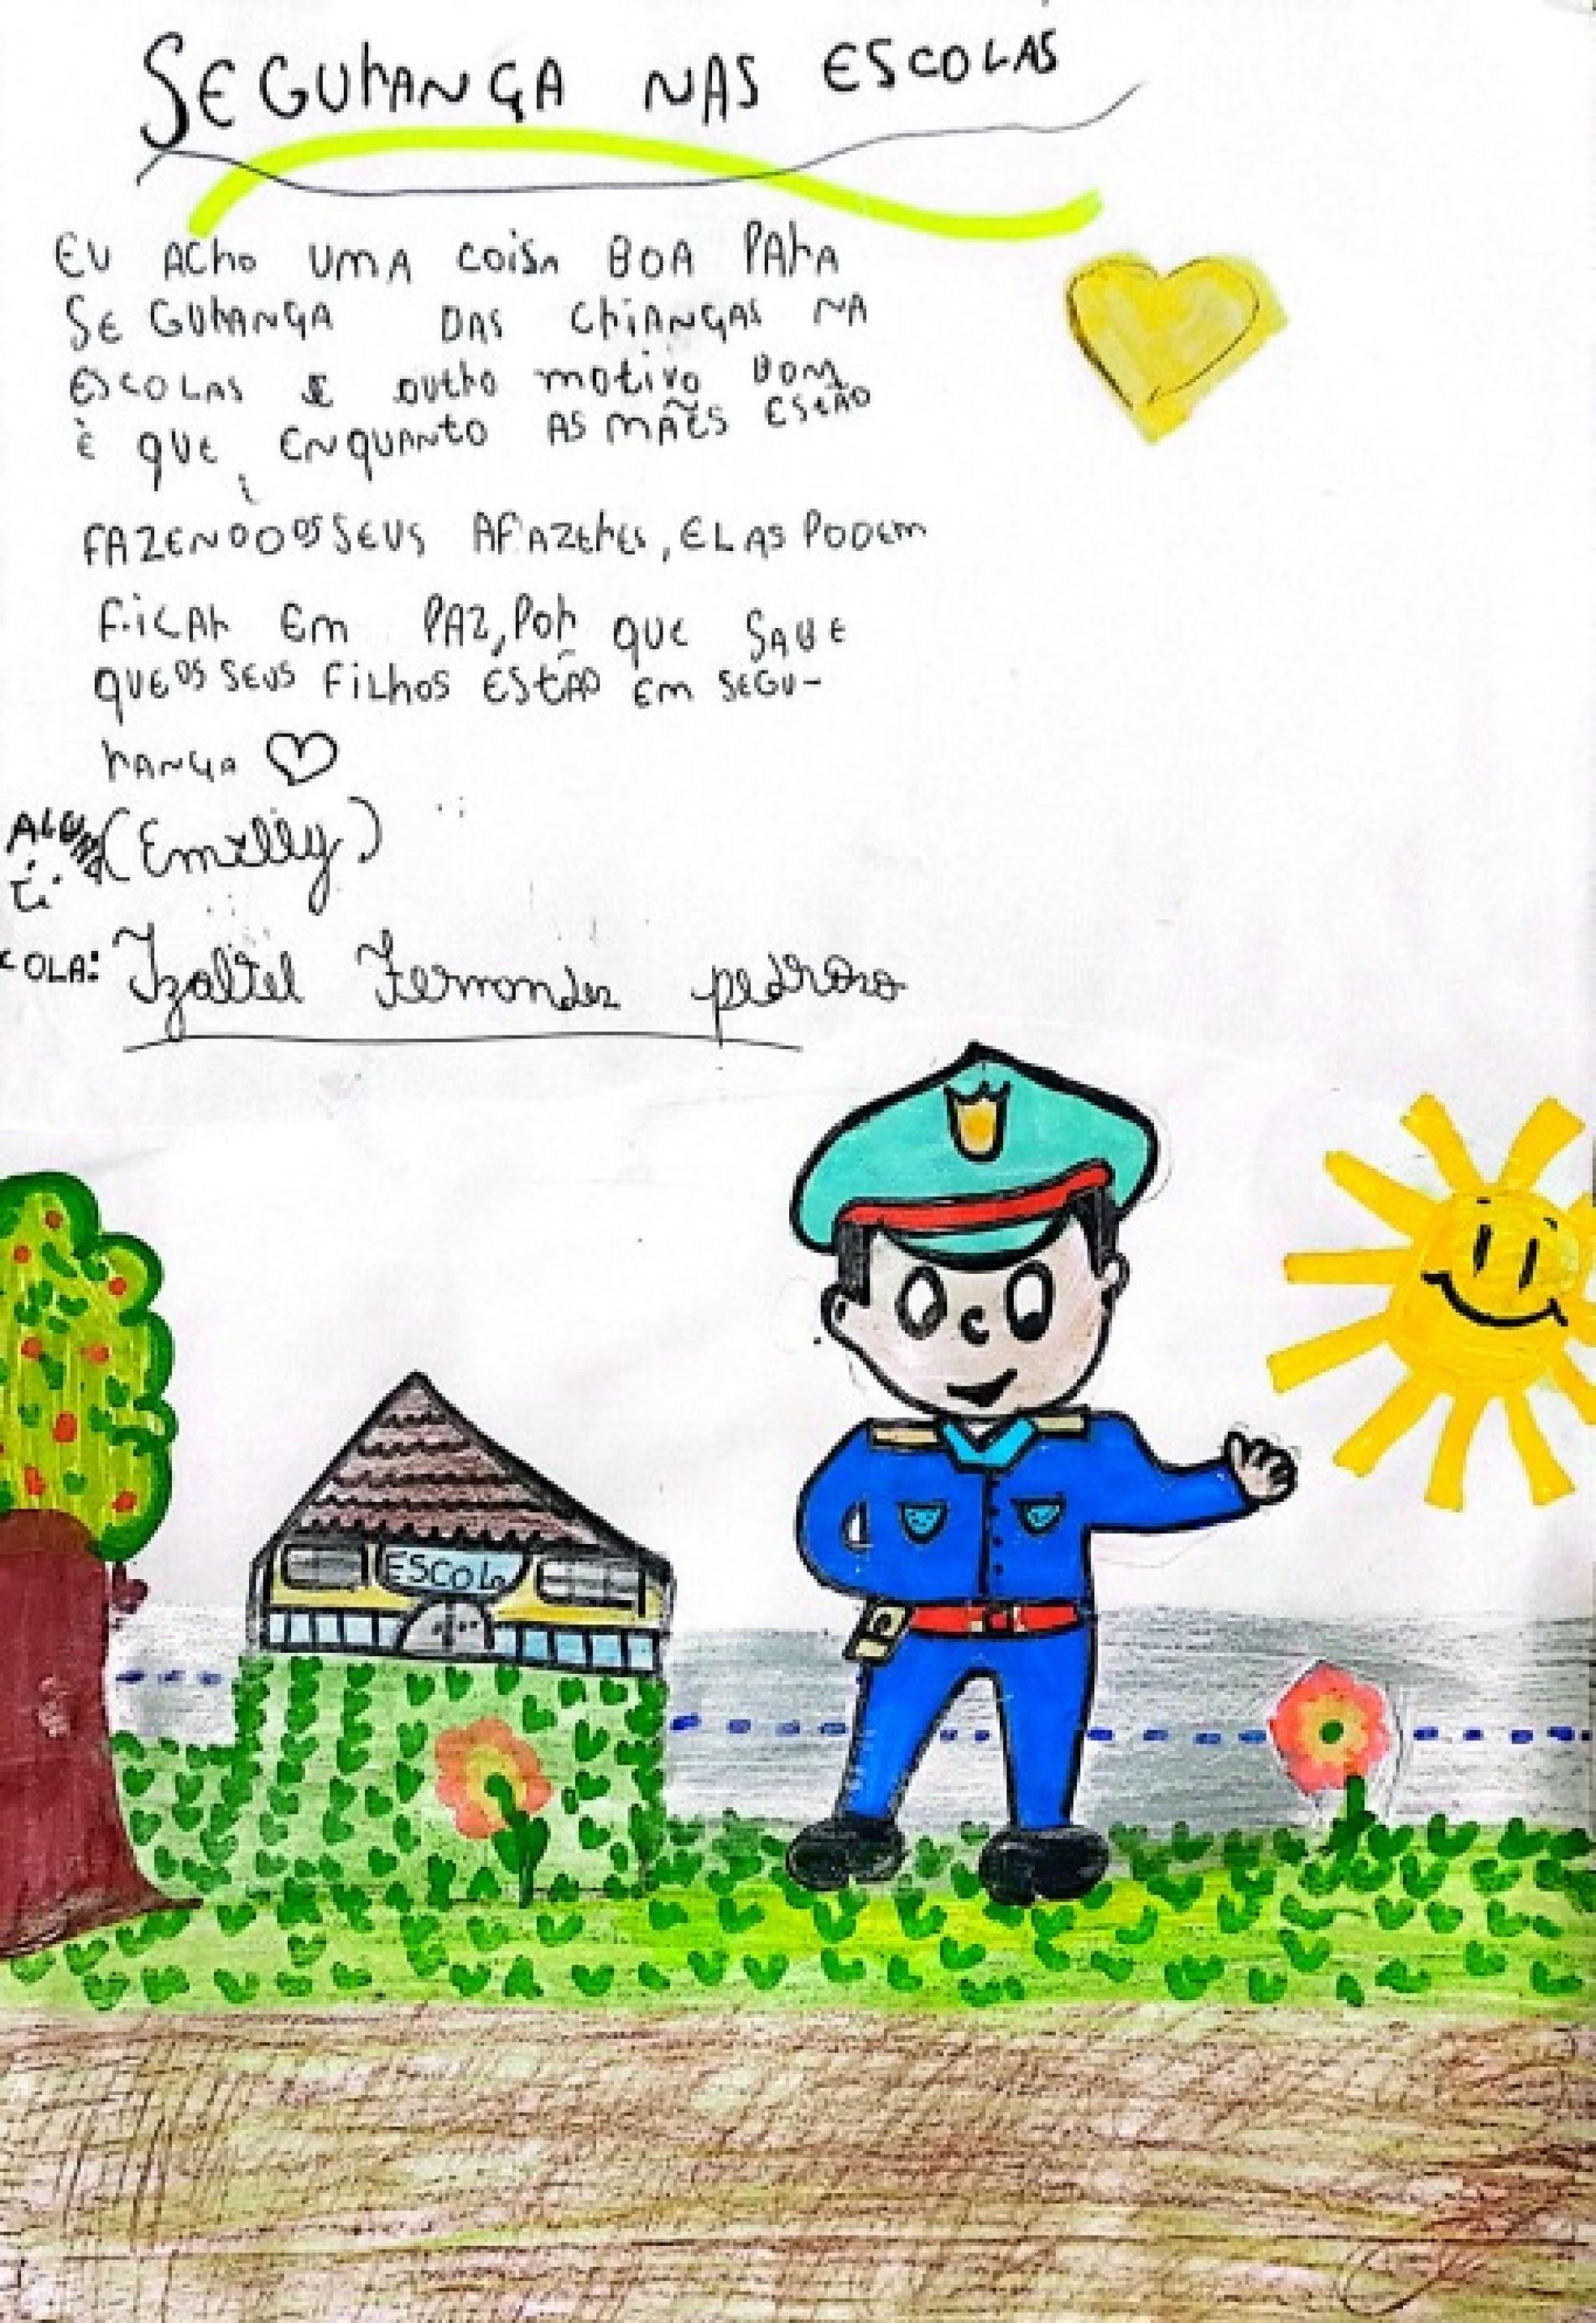 SEGURANÇA NAS ESCOLAS
EU ACHO UMA COISA BOA PARA
SEGURANÇA DAS CRIANÇAS NA
ESCOLAS E OUTRO MOTIVO BOM
É QUE ENQUANTO AS MÃES ESTÃO
FAZENDO OS SEUS AFAZERES, ELAS PODEM
FICAR EM PAZ, POR QUE SABE
QUE OS SEUS FILHOS ESTÃO EM SEGU-
RANÇA
(Emilly)
COLA: Izaltel Fernandez pedroso
ESCOLA